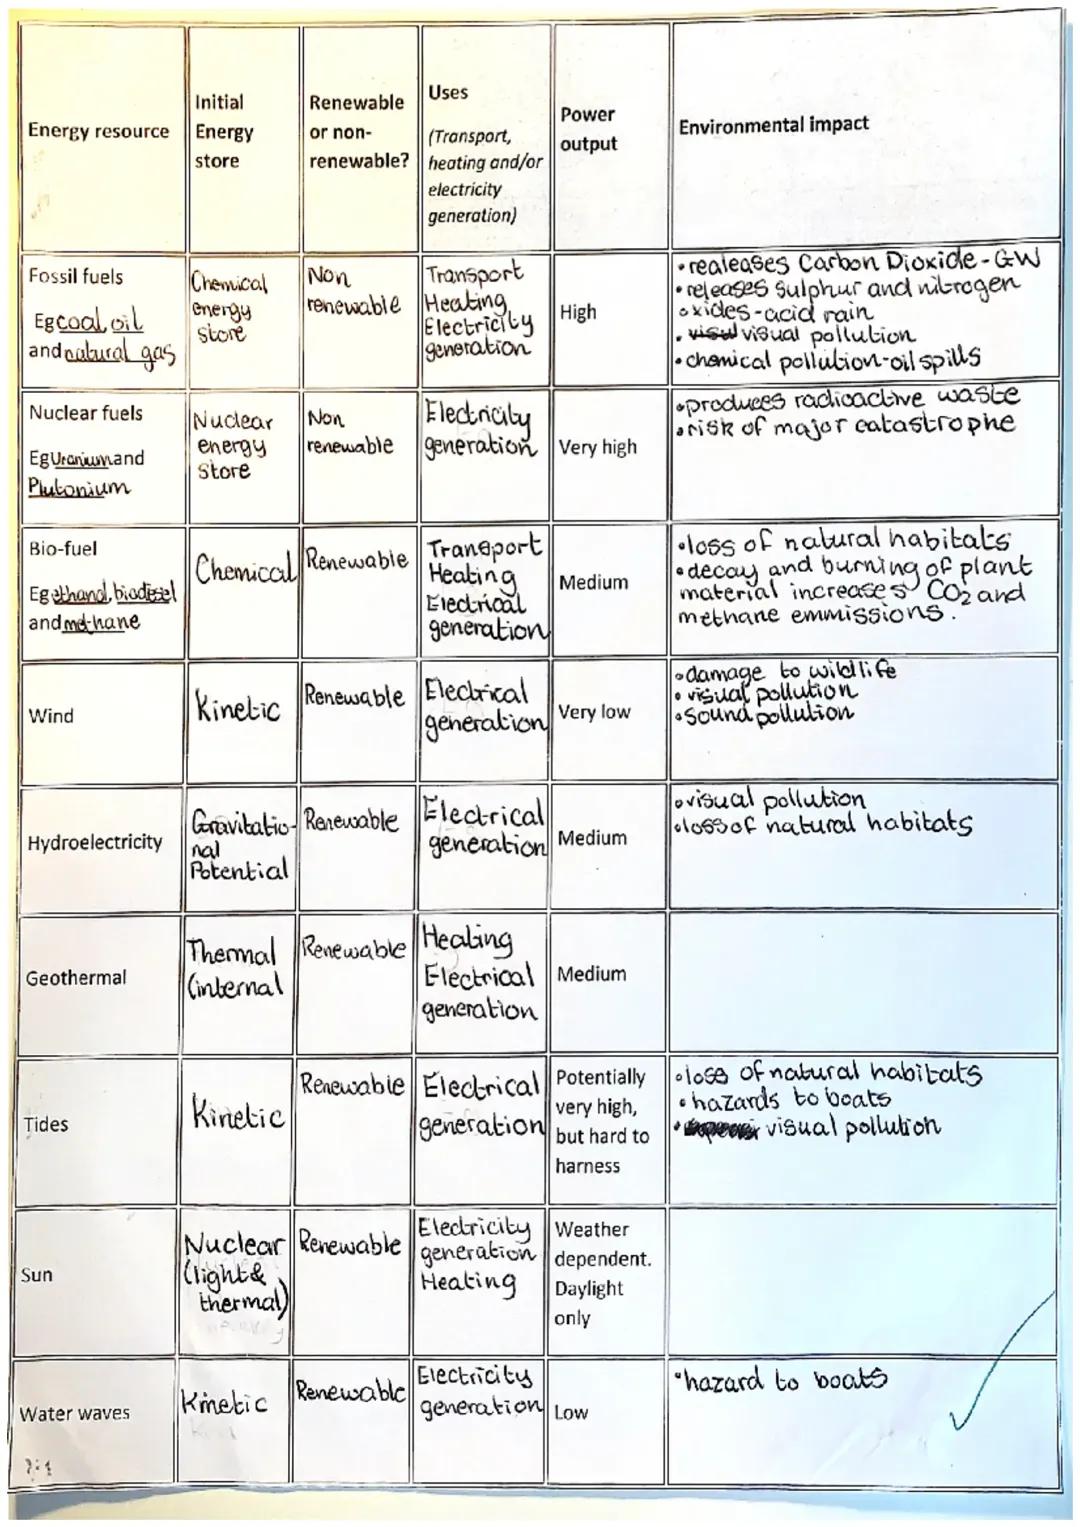 Energy resource
Initial
Energy
store
Renewable
or non-
renewable?
Uses
(Transport,
heating and/or
electricity
generation)
Power
output
Environmental impact
Fossil fuels
Eg coal, oil
and natural gas
Chemical
energy
store
Non
renewable
Transport
Heating
Electricity
generation
High
•realeases Carbon Dioxide - GW
•releases sulphur and nitrogen
oxides - acid rain
• visual pollution
•chemical pollution - oil spills
Nuclear fuels
Eg Uranium and
Plutonium
Nuclear
energy
store
Non
renewable
Electricity
generation
Very high
•produces radioactive waste
•risk of major catastrophe
Bio-fuel
Eg ethanol, biodiesel
and methane
Chemical
Renewable
Transport
Heating
Electrical
generation
Medium
•loss of natural habitats
•decay and burning of plant
material increases CO2 and
methane emmissions.
Wind
Kinetic
Renewable
Electrical
generation
Very low
•damage to wildlife
•visual pollution
•Sound pollution
Hydroelectricity
Gravitatio-
nal
Potential
Renewable
Electrical
generation
Medium
•visual pollution
•loss of natural habitats
Geothermal
Thermal
(internal
Renewable
Heating
Electrical
generation
Medium
Tides
Kinetic
Renewable
Electrical
generation
Potentially
very high,
but hard to
harness
•loss of natural habitats
•hazards to boats
• visual pollution
Sun
Nuclear
(light &
thermal)
Renewable
Electricity
generation
Heating
Weather
dependent.
Daylight
only
Water waves
Kinetic
Renewable
Electricity
generation
Low
•hazard to boats